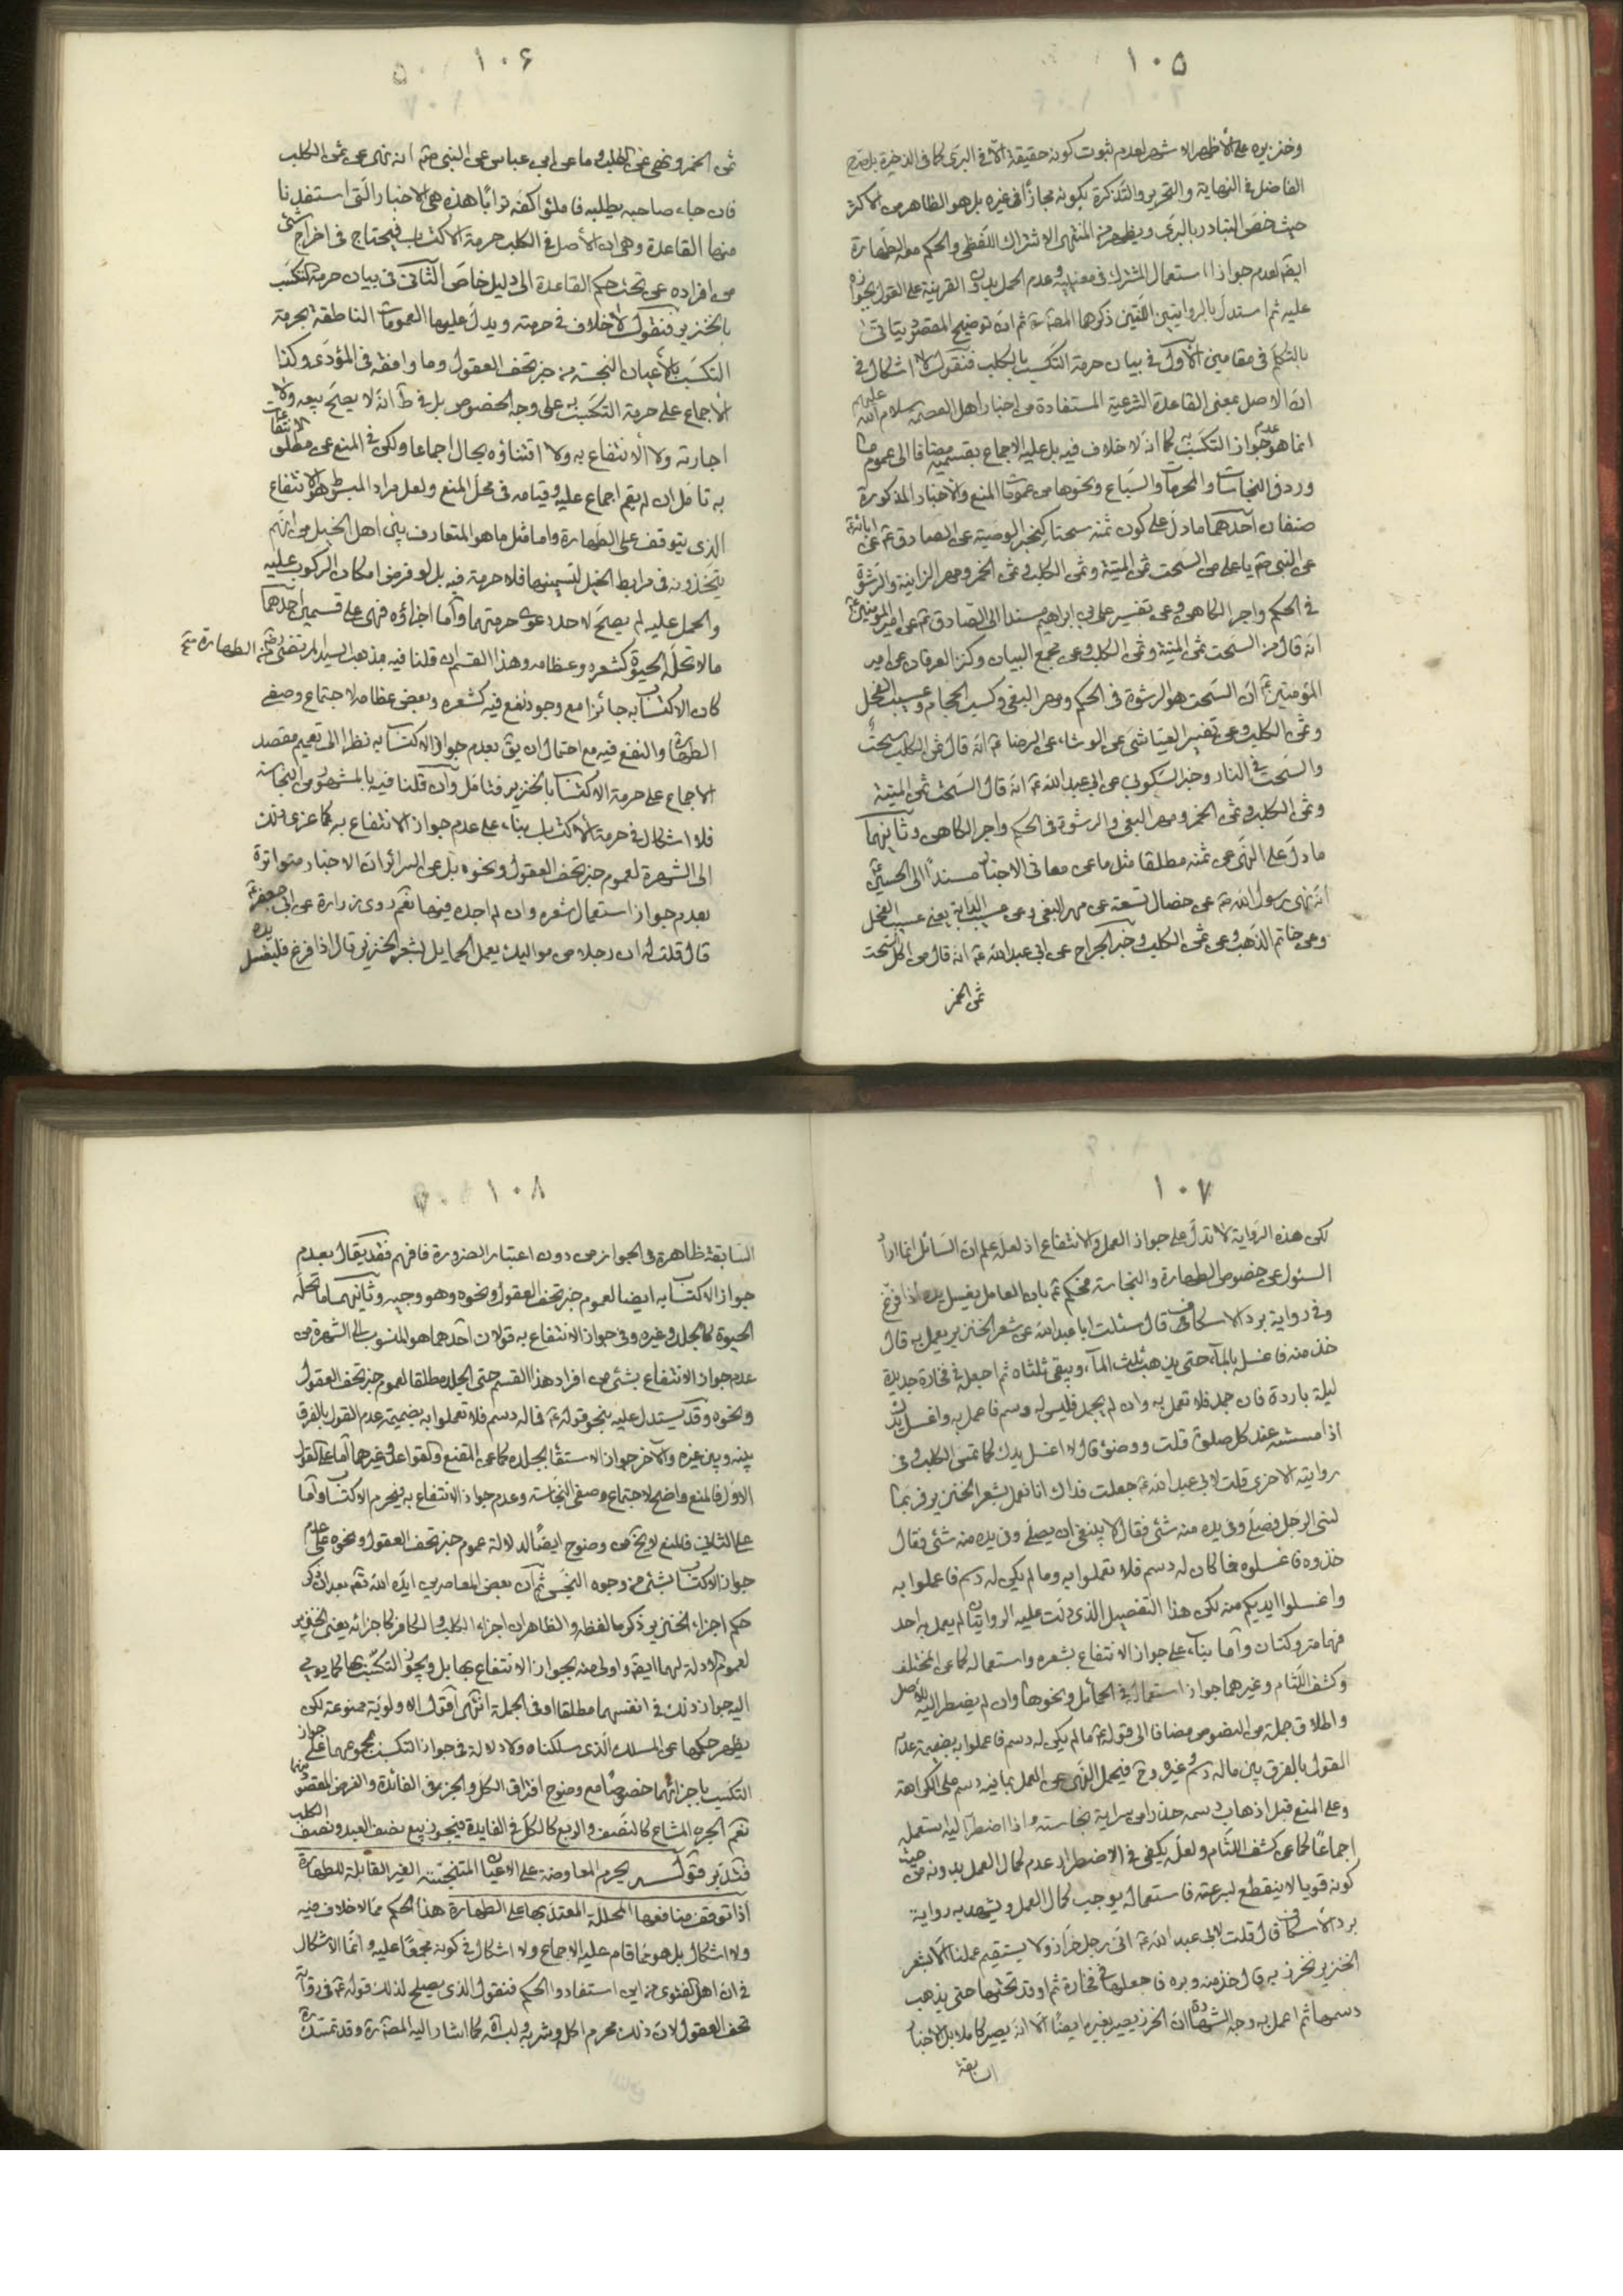 ١٠٥
وخنزيره على الأظهر الاشهر لعدم ثبوت كونه حقيقة الا في البرى كما في الذخيرة بل صرح
الفاضل في النهاية والتحرير والتذكرة بكونه مجازا في غيره بل هو الظاهر من الاكثر
حيث خص التبادر بالبرى ويظهر من المنتهى الاشتراك اللفظى والحكم معه الطهارة
ايضا لعدم جواز استعمال المشترك في معنييه وعدم الحمل بدون القرينة على القول بجوازه
عليه ثم استدل بالروايتين اللتين ذكرهما المصنف ثم ان توضيح المقصود يتاتى
بالتكلم في مقامين الأول في بيان حرمة التكسب بالكلب فنقول لا اشكال في
ان الاصل بمعنى القاعدة الشرعية المستفادة من اخبار اهل العصمة سلام الله عليهم
انما هو عدم جواز التكسب به كما انه لا خلاف فيه بل عليه الاجماع بقسميه مضافا الى عموم ما
ورد في النجاسات والمحرمات والسباع ونحوها من عمومات المنع والاخبار المذكورة
صنفان احدهما ما دل على كون ثمنه سحتا كخبر الوصية عن الصادق ع عن ابائه
عن النبي ص يا على من السحت ثمن الميتة وثمن الكلب وثمن الخمر ومهر الزانية والرشوة
في الحكم واجر الكاهن وعن تفسير على بن ابراهيم مسندا الى الصادق ع عن امير المومنين ع
انه قال من السحت ثمن الميتة وثمن الكلب وعن مجمع البيان وكنز العرفان عن امير
المؤمنين ع ان السحت هو الرشوة في الحكم ومهر البغى وكسب الحجام وعسيب الفحل
وثمن الكلب وعن تفسير العياشى عن الوشاء عن الرضا ع انه قال ثمن الكلب سحت
والسحت في النار وخبر السكونى عن ابي عبد الله ع انه قال السحت ثمن الميتة
وثمن الكلب وثمن الخمر ومهر البغى والرشوة في الحكم واجر الكاهن وثانيهما
ما دل على النهى عن ثمنه مطلقا مثل ما عن معانى الاخبار مسندا الى الحسين ع
انه نهى رسول الله ص عن خصال تسعة عن مهر البغى وعن عسيب الدابة يعنى عسيب الفحل
وعن خاتم الذهب وعن ثمن الكلب وخبر الجراح عن ابي عبد الله ع انه قال من اكل السحت
ثمن الخمر
١٠۶
ثمن الخمر ونهى عن ثمن الكلب وما عن ابن عباس عن النبي ص انه نهى عن ثمن الكلب
فان جاء صاحبه يطلبه فاملئوا كفه ترابا هذه هى الاخبار التى استفدنا
منها القاعدة وهى ان الأصل في الكلب حرمة الاكتساب فيحتاج في اخراج شئ
من افراده عن تحت حكم القاعدة الى دليل خاص الثانى في بيان حرمة التكسب
بالخنزير فنقول لا خلاف في حرمته ويدل عليها العمومات الناطقة بحرمة
التكسب بالأعيان النجسة من خبر تحف العقول وما وافقه في المؤدى وكذا
الأجماع على حرمة التكسب به على وجه الخصوص بل في ط انه لا يصح بيعه ولا
اجارته ولا الانتفاع به ولا اقتناؤه بحال اجماعا ولكن في المنع عن مطلق الانتفاعات
به تامل ان لم يقم اجماع عليه وقيامه في محل المنع ولعل مراد المبسوط هو الانتفاع
الذى يتوقف على الطهارة واما مثل ما هو المتعارف بين اهل الخيل من انهم
يتخذونه في مرابط الخيل لتسمينها فلا حرمة فيه بل لو فرض امكان الركوب عليه
والحمل عليه لم يصح لاحد دعوى حرمتهما وأما اجزاؤه فهى على قسمين احدهما
مالا تحله الحيوة كشعره وعظامه وهذا القسم ان قلنا فيه بمذهب السيد المرتضى من الطهارة
كان الاكتساب به جائزا مع وجود نفع فيه كشعره وبعض عظامه لاجتماع وصفى
الطهارة والنفع فيه مع احتمال ان يق بعدم جواز الاكتساب به نظرا الى تعميم مقصد
الاجماع على حرمة الاكتساب بالخنزير فتامل وان قلنا فيه بالمشهور من النجاسة
فلا اشكال في حرمة الاكتساب بناء على عدم جواز الانتفاع به كما عزى ذلك
الى الشهرة لعموم خبر تحف العقول ونحوه بل عن السرائر ان الاخبار متواترة
بعدم جواز استعمال شعره وان لم اجده فيها نعم روى زرارة عن ابى جعفر ع
قال قلت له ان رجلا من مواليك يعمل الحمايل بشعر الخنزير قال اذا فرغ فليغسل يده
١٠٧
لكن هذه الرواية لا تدل على جواز العمل والانتفاع اذ لعله علم ان السائل انما اراد
السئول عن خصوص الطهارة والنجاسة فحكم ع بان العامل يغسل يده اذا فرغ
وفي رواية برد الاسكاف قال سئلت ابا عبد الله عن شعر الخنزير يعمل به قال
خذ منه فاغسله بالماء حتى يذهب ثلث الماء ويبقى ثلثاه ثم اجعله في فخارة جديدة
ليلة باردة فان جمد فلا تعمل به وان لم يجمد فليس له دسم فاعمل به واغسل يدك
اذا مسسته عند كل صلوة قلت ووضوء قال لا اغسل يدك كما تمس الكلب وفي
روايته الاخرى قلت لابى عبد الله ع جعلت فداك انا نعمل بشعر الخنزير فربما
نسى الرجل فصلى وفي يده منه شئ فقال لا ينبغى ان يصلى وفي يده منه شئ فقال
خذوه فاغسلوه فما كان له دسم فلا تعملوا به وما لم يكن له دسم فاعملوا به
واغسلوا ايديكم منه لكن هذا التفصيل الذى دلت عليه الروايتان لم يعمل به احد
فهما متروكتان وأما بناء على جواز الانتفاع بشعره واستعماله كما عن المختلف
وكشف اللثام وغيرهما جواز استعماله في الحمائل ونحوها وان لم يضطر اليه للأصل
واطلاق جملة من النصوص مضافا الى قوله ع ما لم يكن له دسم فاعملوا به بضميمة عدم
القول بالفرق بين ماله دسم وغيره وح فيحمل النهى عن العمل بما فيه دسم على الكراهة
وعلى المنع قبل اذهاب دسمه حذرا من سراية نجاسته واذا اضطر اليه استعمله
اجماعا كما عن كشف اللثام ولعله يكفى في الاضطرار عدم كمال العمل بدونه من حيث
كونه قويا لا ينقطع لبرعته فاستعماله يوجب كمال العمل ويشهد به رواية
برد الاسكاف قال قلت لابى عبد الله ع انى رجل خراز ولا يستقيم عملنا الا بشعر
الخنزير نخرز به قال خذ منه وبره فاجعلها في فخارة ثم اوقد تحتها حتى يذهب
دسمها ثم اعمل به وجه الشهادة ان الخرز يصير بغيره ايضا الا انه يصير كاملا به بل الأخبار
السابقة
١٠٨
السابقة ظاهرة في الجواز من دون اعتبار الضرورة فافهم فقد يقال بعدم
جواز الاكتساب به ايضا لعموم خبر تحف العقول ونحوه وهو وجيه وثانيهما ما تحله
الحيوة كالجلد وغيره وفي جواز الانتفاع به قولان احدهما هو المنسوب الى الشهرة من
عدم جواز الانتفاع بشئ من افراد هذا القسم حتى الجلد مطلقا لعموم خبر تحف العقول
ونحوه وقد يستدل عليه بنحو قوله ع فما له دسم فلا تعملوا به بضميمة عدم القول بالفرق
بينه وبين غيره والآخر جواز الاستقاء بجلده كما عن المقنع والقواعد وغيرهما أما على القول
الاول فالمنع واضح لاجتماع وصفى النجاسة وعدم جواز الانتفاع به فيحرم الاكتساب وأما
على الثانى فالمنع لا يخ عن وضوح ايضا لدلالة عموم خبر تحف العقول ونحوه على عدم
جواز الاكتساب بشئ من وجوه النجس ثم ان بعض المعاصرين ايده الله تعم بعد ان ذكر
حكم اجزاء الخنزير ذكر ما لفظه والظاهر ان اجزاء الكلب والكافر كاجزائه يعنى الخنزير
لعموم الادلة لهما ايضا واولى منه بجواز الانتفاع بها بل ويجوز التكسب بها كما يومى
اليه جواز ذلك في انفسهما مطلقا او في الجملة انتهى أقول الاولوية ممنوعة لكن
يظهر حكمها عن المسلك الذى سلكناه ولا دلالة في جواز التكسب بمجموعهما على جواز
التكسب باجزائهما خصوصا مع وضوح افتراق الكل والجزء في الفائدة والغرض المقصود منهما
نعم الجزء المشاع كالنصف والربع كالكل في الفايدة فيجوز بيع نصف العبد ونصف الكلب
فتدبر قوله يحرم المعاوضة على الاعيان المتنجسة الغير القابلة للطهارة
اذا توقف منافعها المحللة المعتد بها على الطهارة هذا الحكم مما لا خلاف فيه
ولا اشكال بل هو مما قام عليه الاجماع ولا اشكال في كونه مجمعا عليه وانما الاشكال
في ان اهل الفتوى من اين استفادوا الحكم فنقول الذى يصلح لذلك قوله ع في رواية
تحف العقول لان ذلك محرم اكله وشربه ولبسه كما اشار اليه المصنف ره وقد تمسك